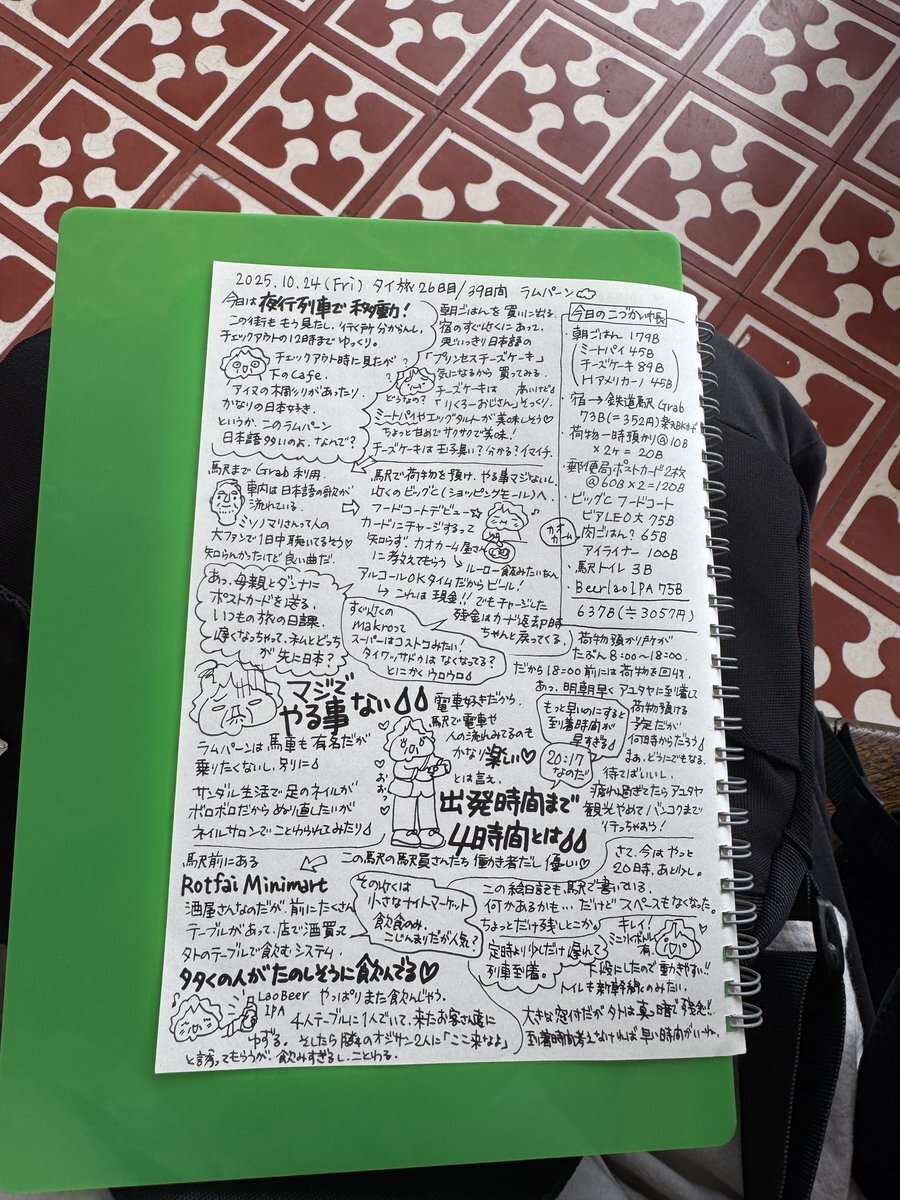 2025.10.24(Fri) タイ旅26日目/39日間 ラムパーン
今日は夜行列車で移動！
この街ももう見たし、行く所分からんし、
チェックアウトの12時までゆっくり。
チェックアウト時に見たが
下のCafe.
アイヌの木彫りがあったり
かなりの日本好き。
というか、このラムパーン
日本語多いのよ。なんで？
朝ごはんを買いに出る。
宿のすぐ近くにあって、
思いっきり日本語の
「プリンセスチーズケーキ」
気になるから買ってみる。
どうなの？
チーズケーキは 高いけど
「りくろーおじさん」そっくり。
ミートパイやエッグタルトが美味しそう♡
ちょっと甘めでサクサクで美味！
チーズケーキは玉子臭い？分かる？イマイチ。
今日のこづかい帳
・朝ごはん 179B
ミートパイ 45B
チーズケーキ 89B
Hアメリカーノ 45B
・宿→鉄道駅 Grab
73B(=352円)
・荷物一時預かり@10B
×2ヶ=20B
・郵便局ポストカード2枚
@60B×2=120B
・ビッグC フードコート
ビアLEO大 75B
肉ごはん? 65B
アイライナー 100B
・駅トイレ 3B
・BeerlaoIPA 75B
637B(≒3057円)
駅までGrab利用
車内は日本語の歌が
流れている。
ミソノマリさんって人の
大ファンで1日中聴いてるそう♡
知らんかったけど良い曲だ。
駅で荷物を預け、やる事マジないし、
近くのビッグC(ショッピングモール)へ。
フードコートデビュー☆
カードにチャージするって
知らず、カオカーム屋さん
に教えてもらう
カオカーム
ルーロー飯みたいなん
アルコールOKタイムだからビール！
→これは現金!! でもチャージした
残金はカード返却時
ちゃんと戻ってくる。
あっ、母親とダンナに
ポストカードを送る。
いつもの旅の日課。
遅くなっちゃって、私とどっち
が先に日本？
すぐ近くの
makroって
スーパーはコストコみたい！
タイワッサドゥはなくなってる？
とにかくウロウロ
荷物預かり所が
たぶん8:00〜18:00.
だから18:00前には荷物を回収。
マジで
やる事ない
ラムパーンは、馬車も有名だが
乗りたくないし、別に
サンダル生活で足のネイルが
ボロボロだからぬり直したいが
ネイルサロンでことわられてみたり
電車好きだから、
駅で電車や
人の流れみてるのも
かなり楽しい♡
とは言え、
おおっ
出発時間まで
4時間とは
もっと早いのにすると
到着時間が
早すぎる
20:17
なのだ
あっ、明朝早くアユタヤに到着して
荷物預ける
予定だが
何時からだろう
まぁ、どうにでもなる。
待てばいいし、
疲れ過ぎてたらアユタヤ
観光やめてバンコクまで
行っちゃおう！
この駅の駅員さんたち働き者だし優しい♡
駅前にある
Rotfai Minimart
酒屋さんなのだが、前にたくさん
テーブルがあって、店で酒買って
外のテーブルで飲むシステム。
多くの人がたのしそうに飲んでる♡
その近くは
小さなナイトマーケット
飲食のみ。
こじんまりだが人気？
LaoBeer
IPA
やっぱりまた飲んじゃう。
4人テーブルに1人でいて、来たお客さん達に
ゆずる。そしたら隣のオジサン2人に「ここ来なよ」
と誘ってもらうが、飲みすぎるし、ことわる。
さて、今はやっと
20時、あと少し。
この絵日記も駅で書いている。
何かあるかも…だけどスペースもなくなった。
ちょっとだけ残しとこか。
定時より少しだけ遅れて
列車到着。
キレイ！
ミニボトル
有.
下段にしたので動きやすい!!
トイレも新幹線のみたい。
大きな窓付だが外は真っ暗で残念!!
到着時間考えなければ早い時間がいいわ。